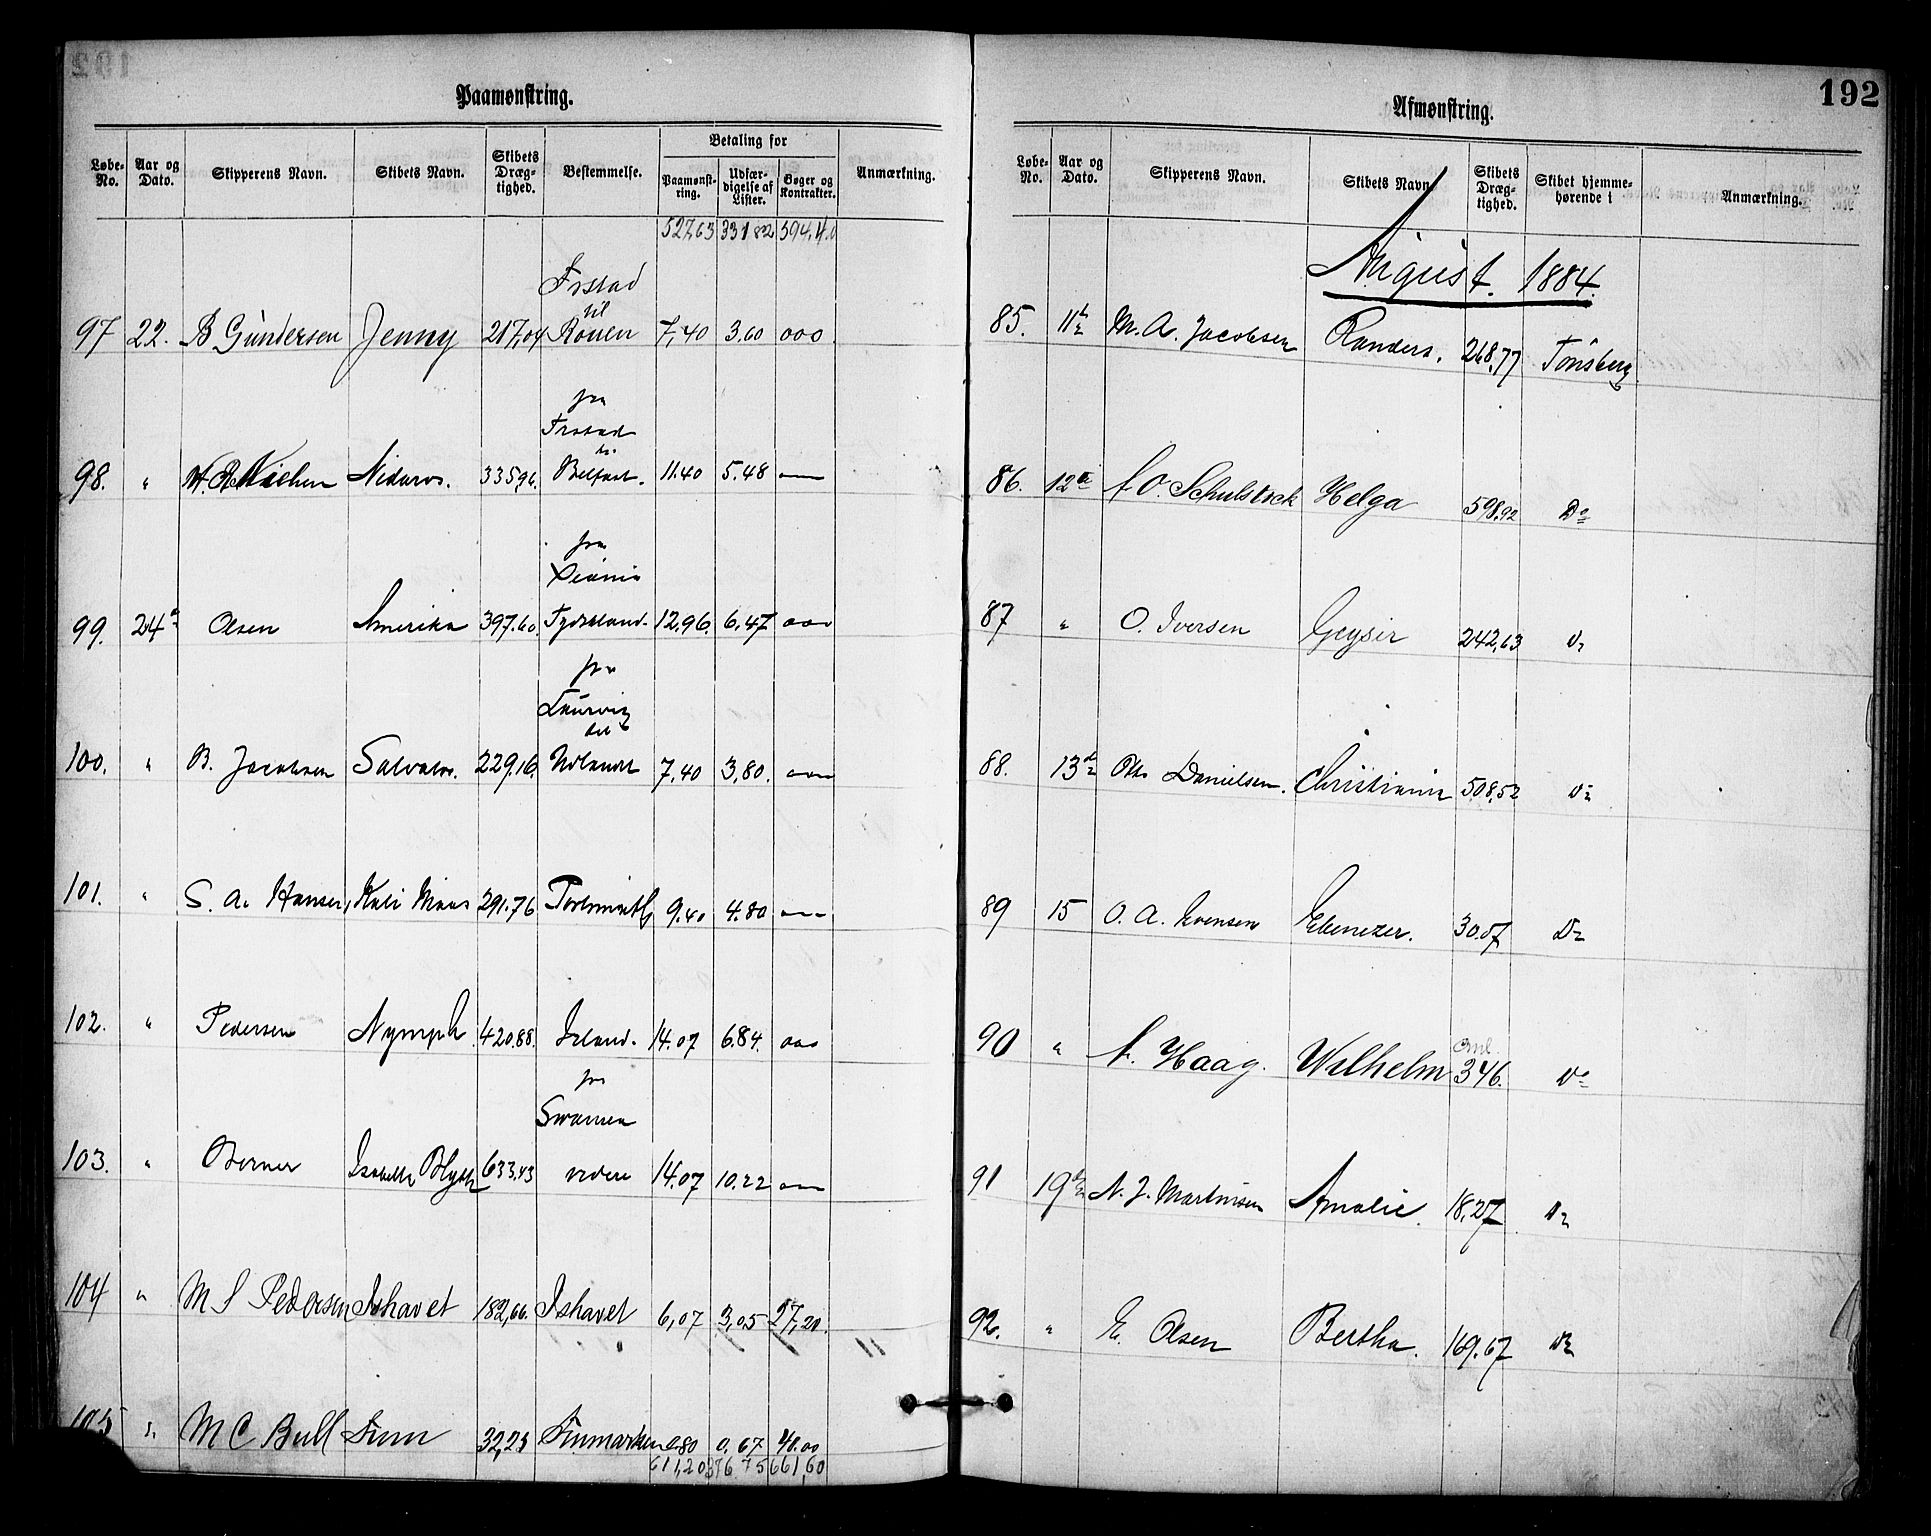 192
Paamønstring.
Løbe-No. Aar og Dato. Skipperens Navn. Skibets Navn. Skibets Dræg-tighed. Bestemmelse. Betaling for Paamønst-ring. Udfær-digelse af Lister. Bøger og Kontrakter. Anmærkning.
527,63 331 82 594,40
Frstad
til
97 22. B Gundersen Jenny 217,04 Rouen 7,40 3.60 000
fra
Frstad
98. " Nielsen Nidaros. 335,96. Belfast. 11.40 5.48
fra
Xiania
99. 24de Olsen Amerika 397.60. Tydskland. 12,96. 6,47 000
fra
Laurvig
til
100. " B. Jacobsen Salvator. 229.16. Udlandet 7,40 3,80.
101. " S. A. Hansen, Kali Maas 291.76 9.40 4.80
102. " Pedersen Nymph 420.88. Irland. 14.07 6.84. 000
fra
Swansea
103. " Berner Isabella Blyth 633.43 videre 14.07 10.22
104 " M S Pedersen Ishavet 182,66. Ishavet 6,07 3,05 27,20.
105 " M C Bull 32,28 Finmarken 0.80 0,67 40.00
611,20 376 75 661,60
Afmønstring.
Løbe-No. Aar og Dato. Skipperens Navn. Skibets Navn. Skibets Dræg-tighed. Skibet hjemme-hørende i Anmærkning.
August. 1884.
85. 11te M. A. Jacobsen Randers. 268,77 Tønsberg
86. 12te O. Schulstock Helga 598.92 Do
87 " O. Iversen Geysir 242,63 Do
88. 13de Otto Danielsen. Christiania 508,52 Do
89 15 O. A. Evensen Ebenezer. 30.07 Do
90 " A. Haag. Wilhelm 346. Do
91 19de N. J. Martinsen Amalie. 18,27 Do
92. " E. Olsen Bertha. 169.67 Do